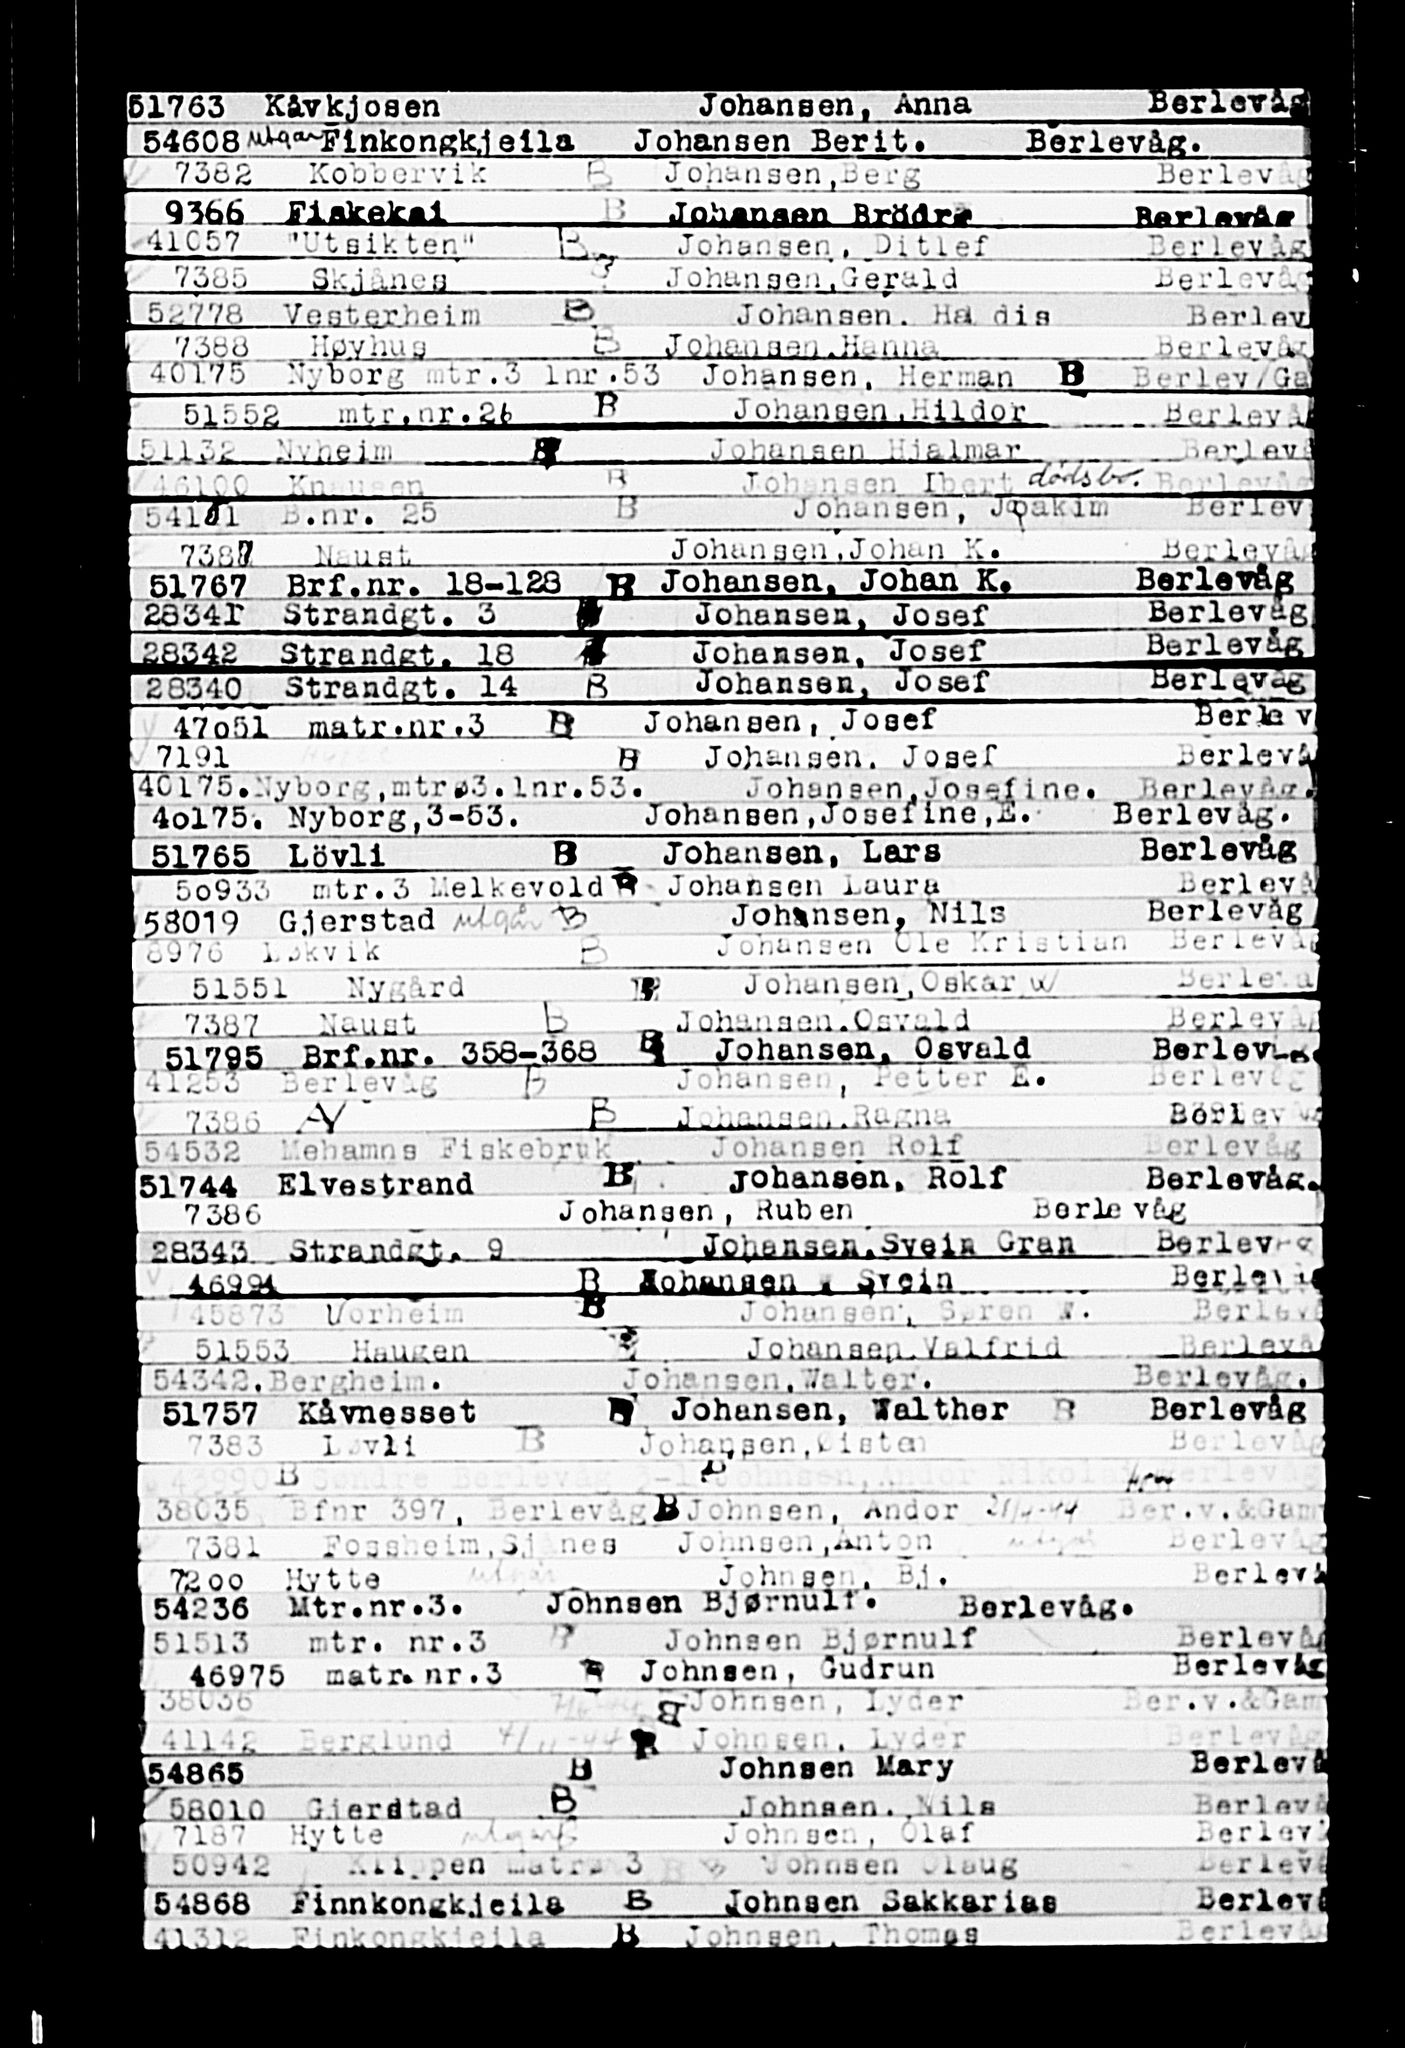 51763 Kåvkjosen Johansen, Anna Berlevåg
54608 utgår Finkongkjeila Johansen Berit. Berlevåg.
7382 Kobbervik B Johansen,Berg Berlevåg
9366 Fiskekai B Johansen Brödre Berlevåg
41057 "Utsikten" B Johansen, Ditlef Berlevåg
7385 Skjånes Johansen,Gerald Berlevåg
52778 Vesterheim B Johansen. Ha dis Berlev
7388 Høyhus B Johansen.Hanna Berlevåg
40175 Nyborg mtr.3 lnr.53 Johansen, Herman B Berlev/Ga
51552 mtr.nr.26 B Johansen.Hildor Berlevå
51132 Nyheim B Johansen Hjalmar Berlevå
46100 Knausen B Johansen Ibert dødsbo. Berlevåg
54181 B.nr. 25 B Johansen, Joakim Berlev
7387 Naust Johansen,Johan K. Berlevåg
51767 Brf.nr. 18-128 B Johansen, Johan K. Berlevåg
28341 Strandgt. 3 Johansen, Josef Berlevåg
28342 Strandgt. 18 Johansen, Josef Berlevåg
28340 Strandgt. 14 B Johansen, Josef Berlevåg
47o51 matr.nr.3 B Johansen, Josef Berle v
7191 B Johansen. Josef Berlevå
40175.Nyborg,mtrø3.lnr.53. Johansen,Josefine. Berlevåg.
4o175. Nyborg,3-53. Johansen,Josefine,E. Berlevåg.
51765 Lövli B Johansen, Lars Berlevåg
5o933 mtr.3 Melkevold B Johansen Laura Berlevå
58019 Gjerstad utgår B Johansen, Nils Berlevåg
8976 Løkvik B Johansen Ole Kristian Berlevåg
51551 Nygård B Johansen,Oskar W Berleva
7387 Naust B Johansen.Osvald Berlevåg
51795 Brf.nr. 358-368 B Johansen, Osvald Berlevåg.
41253 Berlevåg B Johansen, Petter E. Berlevåg
7386 B Johansen.Ragna Berlevåg
54532 Mehamns Fiskebruk Johansen Rolf Berlevåg
51744 Elvestrand B Johansen, Rolf Berlevåg.
7386 Johansen, Ruben Berle våg
28343 Strandgt. 9 Johansen.Svein Gran Berlevåg
46994 B Johansen Svein Berlevåg
45873 Vorheim B Johansen, Søren W. Berlevå
51553 Haugen B Johansen.Valfrid Berlevå
54342.Bergheim. Johansen,Walter. Berlevåg.
51757 Kåvnesset B Johansen, Walther B Berlevåg
7383 Løvli B Johansen,Øisten Berlevåg
43990 B Søndre Berlevåg 3-1 Johnsen,Andor Nikolai Berlevåg
38035 Bfnr 397, Berlevåg B Johnsen, Andor Ber.v.&Gam
7381 Fossheim,Sjånes Johnsen,Anton utgår Berlevåg
72oo Hytte utgår Johnsen, Bj. Berlevå
54236 Mtr.nr.3. Johnsen Bjørnulf. Berlevåg.
51513 mtr. nr.3 B Johnsen Bjørnulf Berlevåg
46975 matr.nr.3 B Johnsen, Gudrun Berlevåg
38036 B Johnsen, Lyder Ber.v.&Gam
41142 Berglund 7/11-44 B Johnsen, Lyder Berlevåg
54865 B Johnsen Mary Berlevå
58010 Gjerstad B Johnsen. Nils Berlevå
7187 Hytte utgår Johnsen, Olaf Berlevå
50942 Klippen matr. 3 B Johnsen Olaug Berlevå
54868 Finnkongkjeila B Johnsen Sakkarias Berlevå
41312 Finkongkjeila B Johnsen, Thomas Berlevåg